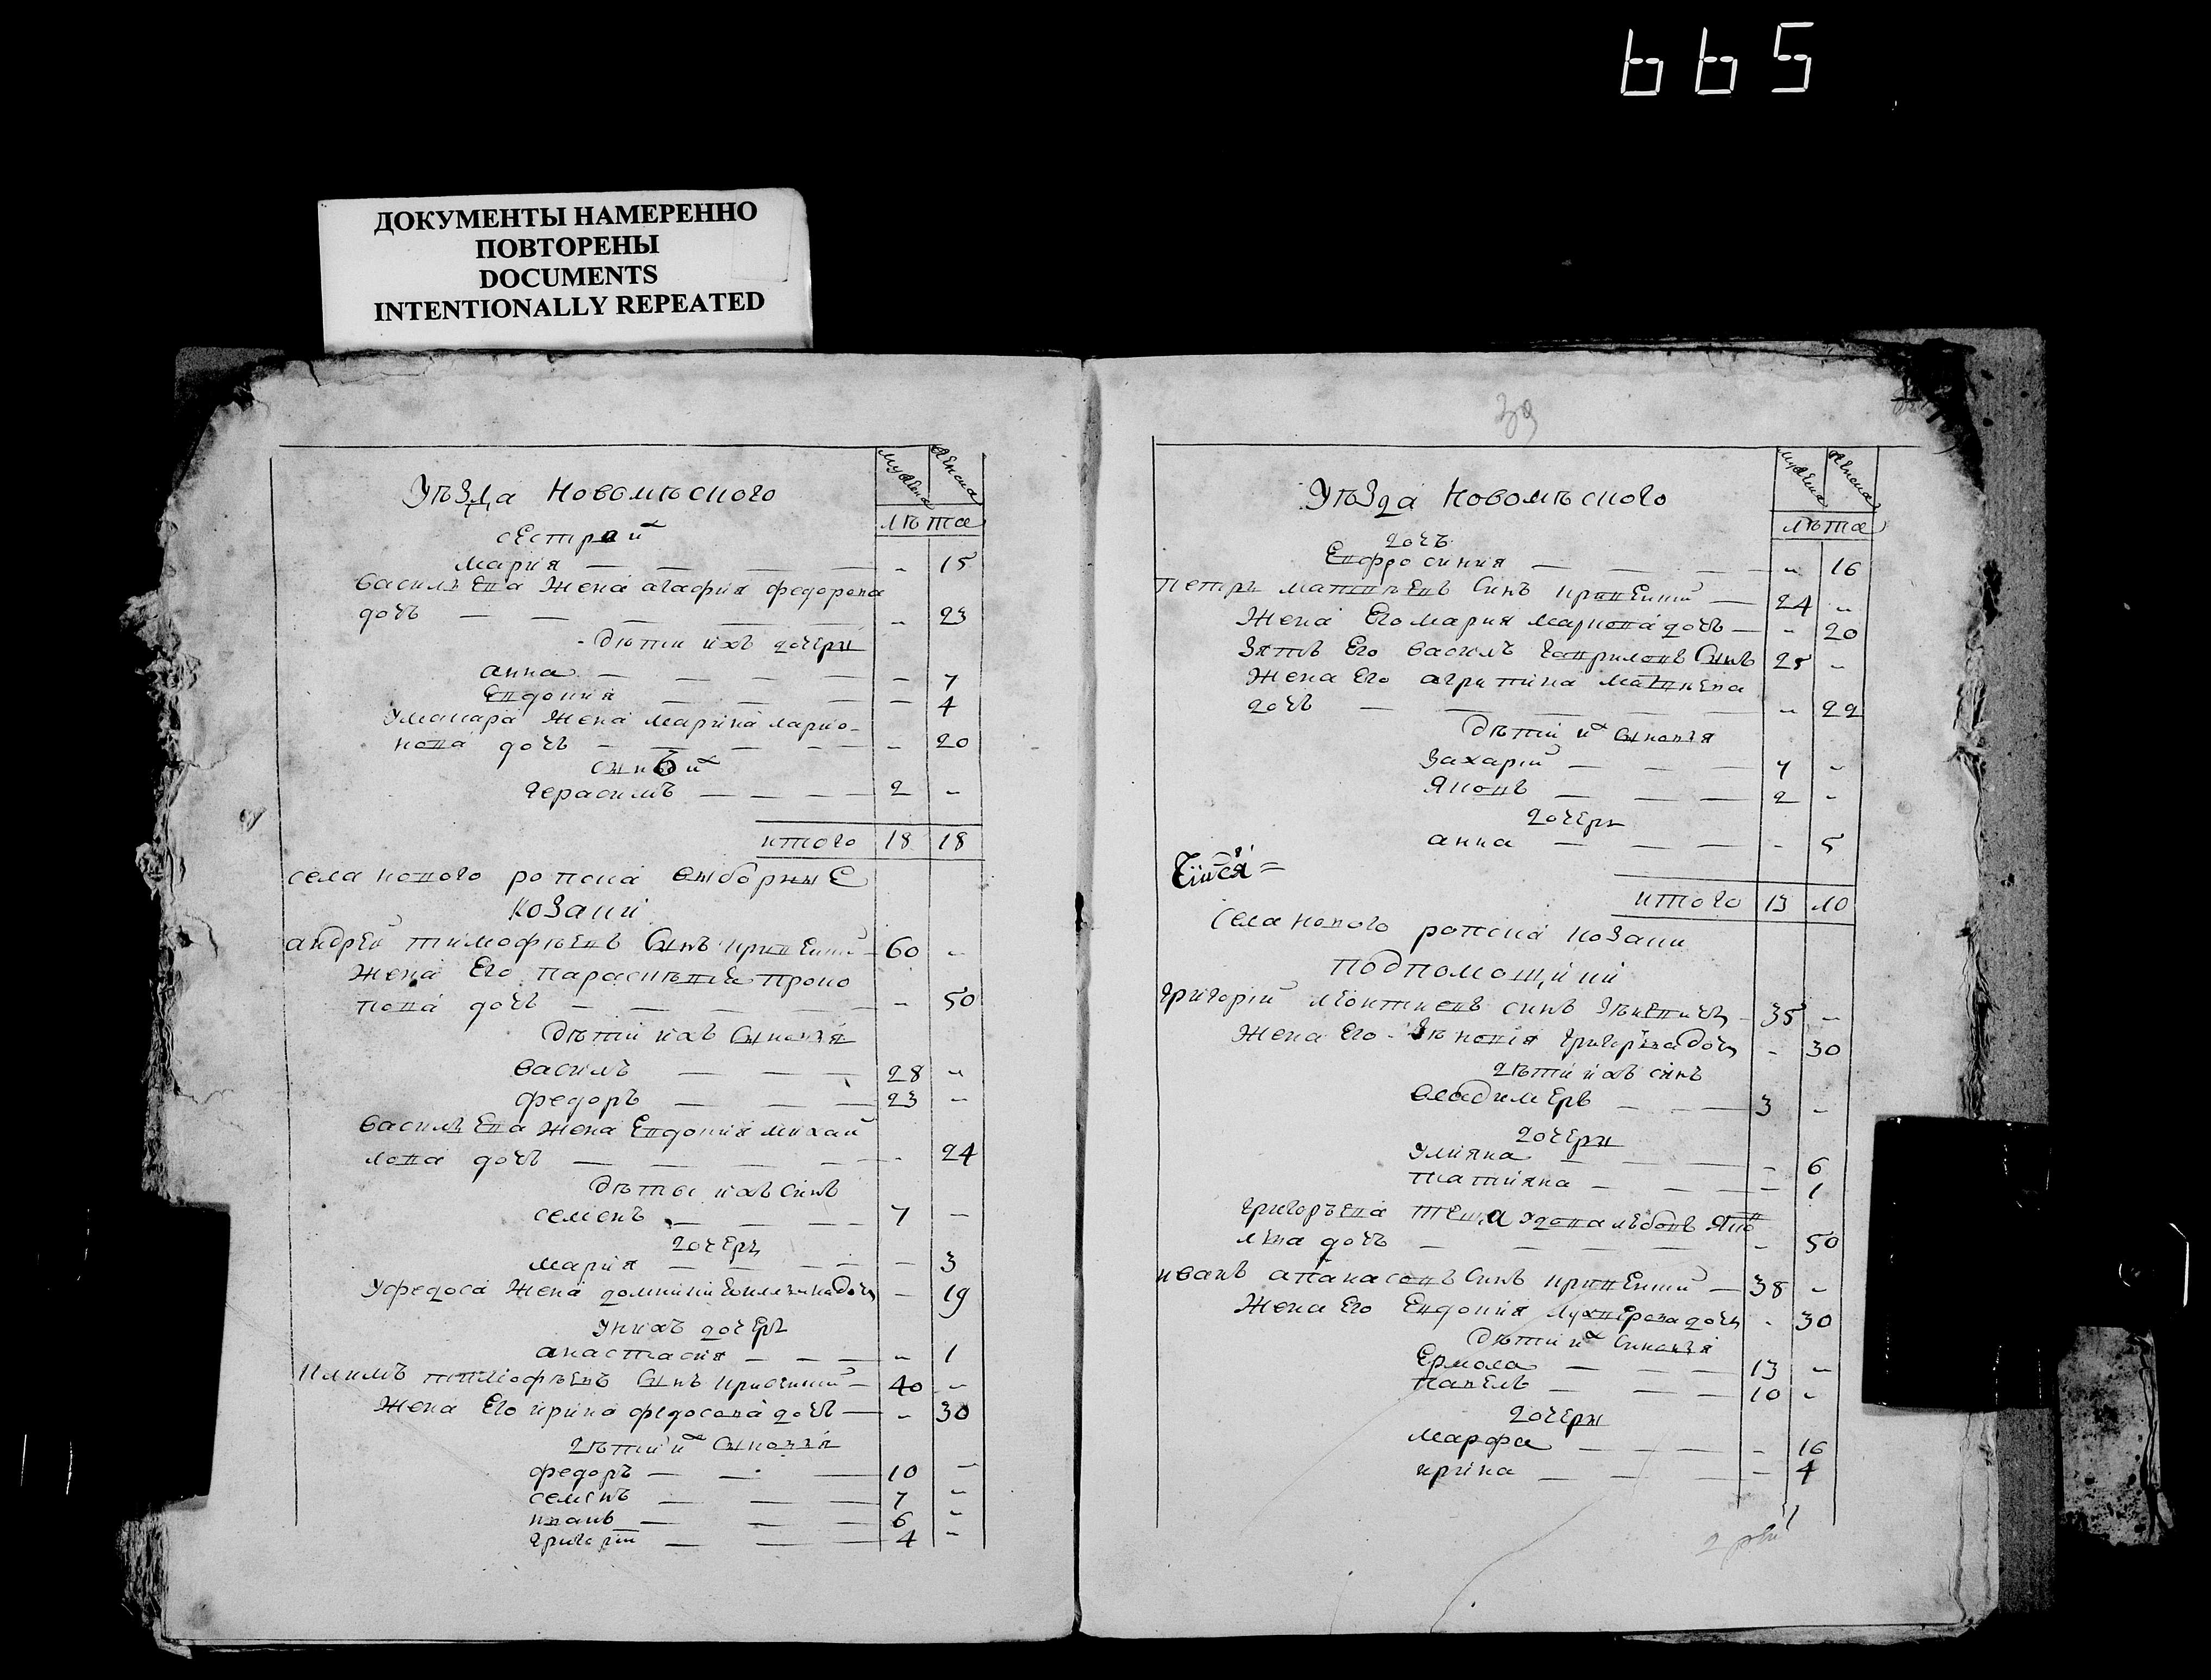 665
ДОКУМЕНТЫ НАМЕРЕННО
ПОВТОРЕНЫ
DOCUMENTS
INTENTIONALLY REPEATED
Уѣзда Новомѣского
мужеска женска
лѣта
сестра их
Мария — — — — „ 15
Василѣева жена агафия федорова
дочъ — — — — „ 23
дѣти ихъ дочери
анна — — — — „ 7
Евдокия — — — — 4
Умакара жена марина ларио-
нова дочъ — — — — „ 20
синъ их
Герасимъ — — — 2 „
итого 18 18
села нового ропска выборные
козаки
андрей тимофѣевъ сынъ — 60 „
жена его
дочъ — — — — „ 50
дѣти ихъ сыновя
василъ — — — 28 „
федоръ — — — 23 „
василѣева жена Евдокия михай
лова дочъ — — — — „ 24
дѣти ихъ синъ
семенъ — — — 7 —
дочеръ
мария — — — — 3
Уфедоса жена дочъ — 19
Унихъ дочеръ
анастасия — — — „ 1
Климъ тимофѣевъ сынъ — 40 „
жена его ирина федосова дочъ — „ 30
дѣти их сыновя
федоръ — — — 10 —
семенъ — — — 7 „
иванъ — — — 6 „
григорий — — — 4 „
39
Уѣзда Новомѣского
мужеска женска
лѣта
дочъ
Евфросиния — — — „ 16
петръ матвѣевъ синъ — 24 „
жена его мария маркова дочъ — „ 20
зятъ его василъ гавриловъ сынъ 25 „
жена его агрипина матвѣева
дочъ — — — — „ 22
дѣти их сыновя
захарий — — — 7 „
Яковъ — — — 2 „
дочери
анна — — — „ 5
итого 13 10
села нового ропска козаки
подпомощики
григорий леонтиевъ синъ — 35 „
жена его григорова дочъ „ 30
дѣти ихъ синъ
владимеръ — — — 3 „
дочери
Улияна — — — „ 6
татияна — — — 1
григоръева теща удова
дочъ — — — — „ 50
иванъ апанасовъ синъ — 38 „
жена его Евдокия дочъ „ 30
дѣти их синовя
Ермола — — — 13 „
павелъ — — — 10 „
дочери
марфа — — — „ 16
ирина — — — 4